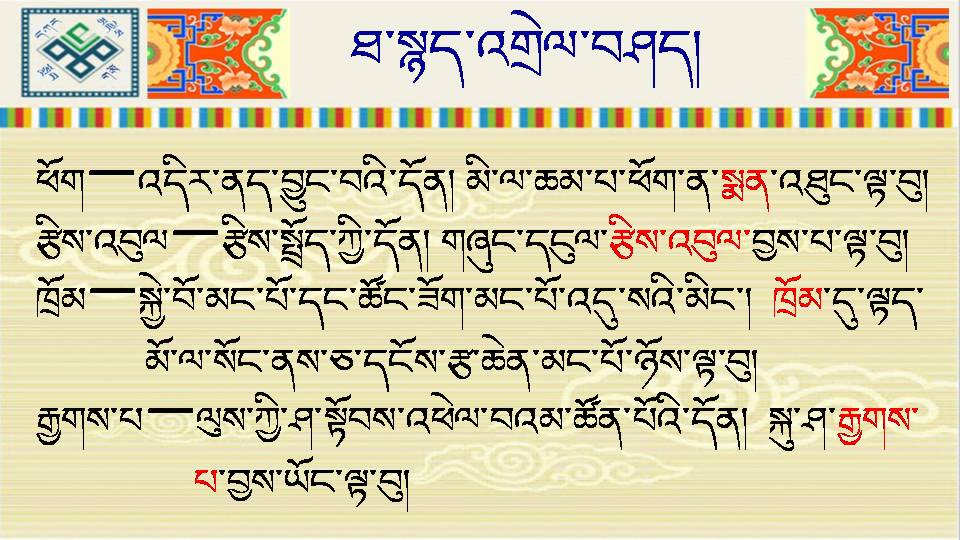 ཐ་སྙད་འགྲེལ་བཤད།
ཕོག—འདིར་ནད་བྱུང་བའི་དོན། མི་ལ་ཆམ་པ་ཕོག་ན་སྨན་འཐུང་ལྟ་བུ།
རྩིས་འབུལ—རྩིས་སྤྲོད་ཀྱི་དོན། གཞུང་དངུལ་རྩིས་འབུལ་བྱས་པ་ལྟ་བུ།
ཁྲོམ—སྐྱེ་བོ་མང་པོ་དང་ཚོང་ཟོག་མང་པོ་འདུ་སའི་མིང་། ཁྲོམ་དུ་ལྟད་
མོ་ལ་སོང་ནས་ཅ་དངོས་རྩ་ཆེན་མང་པོ་ཉོས་ལྟ་བུ།
རྒྱགས་པ—ལུས་ཀྱི་ཤ་སྟོབས་འཕེལ་བའམ་ཚོན་པོའི་དོན། སྐུ་ཤ་རྒྱགས་
པ་བྱས་ཡོང་ལྟ་བུ།